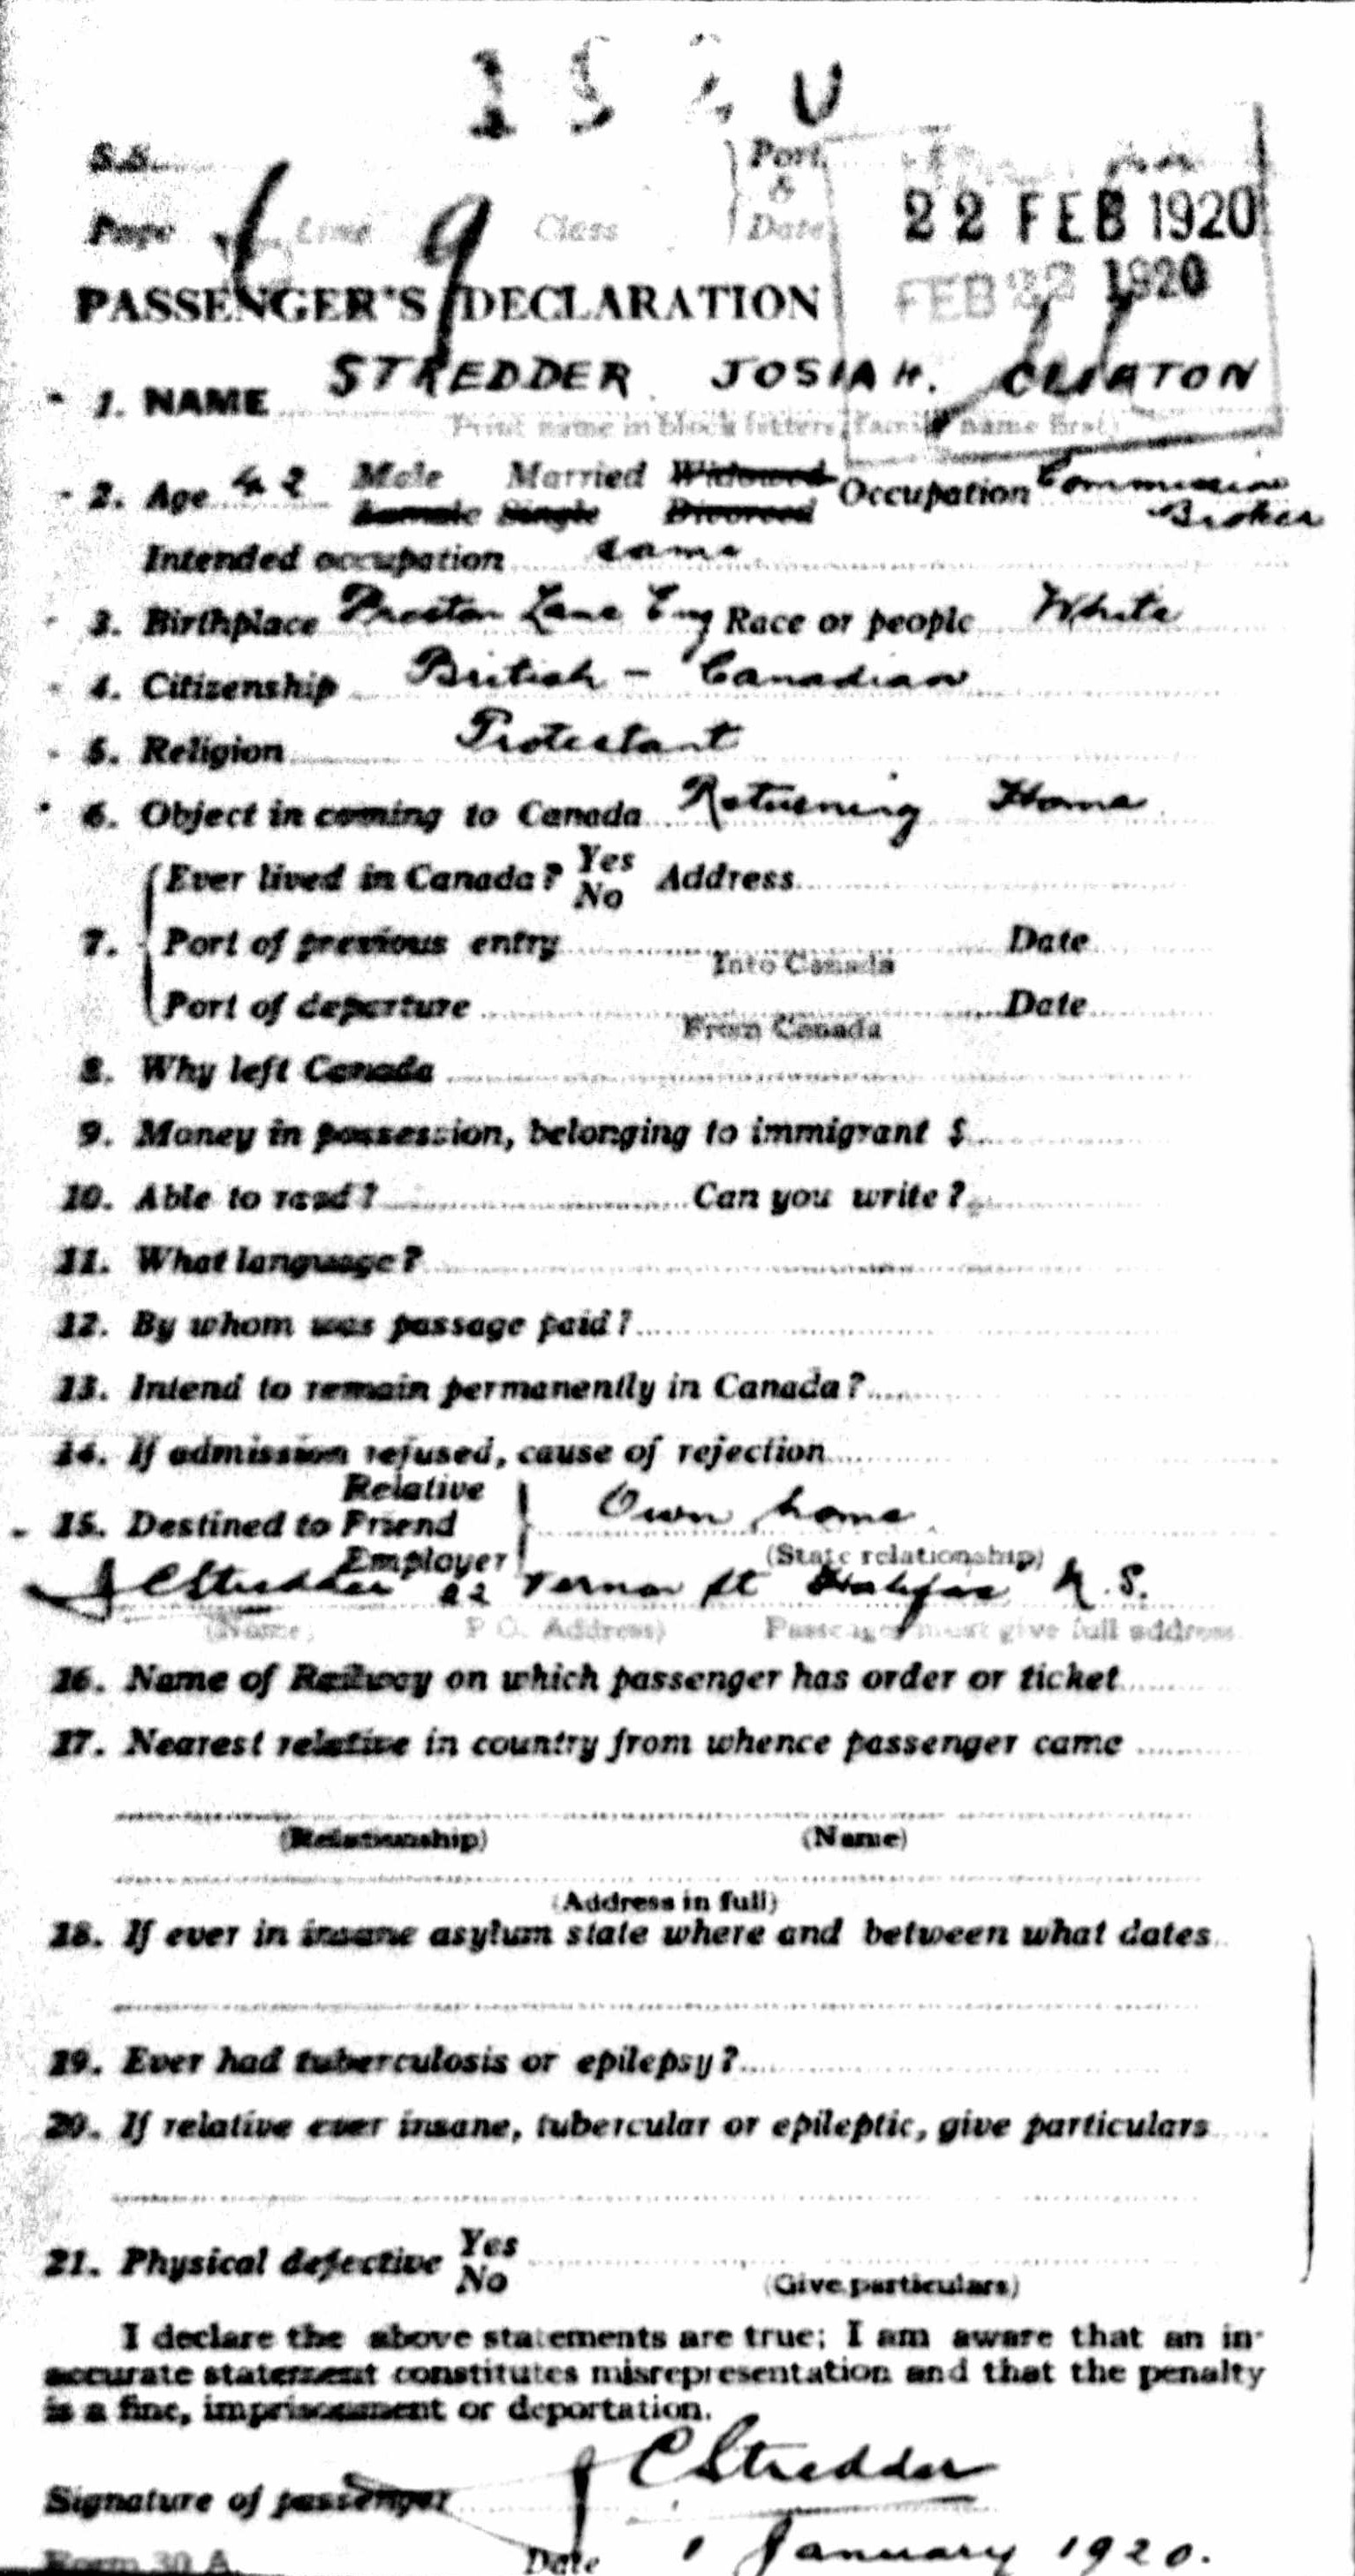 S.S.
Port
&
Date
Page Line Class
22 FEB 1920
FEB 22 1920
PASSENGER'S DECLARATION
1. NAME STREDDER JOSIAH.
Print name in block letters, family name first)
2. Age 42 Male Married Widowed Occupation Commission
Female Single Divorced Broker
Intended occupation same
3. Birthplace Preston Lanc Eng Race or people White
4. Citizenship British - Canadian
5. Religion Protestant
6. Object in coming to Canada Returning Home
7. Ever lived in Canada? Yes No Address
Port of previous entry Date
Into Canada
Port of departure Date
From Canada
8. Why left Canada
9. Money in possession, belonging to immigrant $
10. Able to read? Can you write?
11. What language?
12. By whom was passage paid?
13. Intend to remain permanently in Canada?
14. If admission refused, cause of rejection
15. Destined to Relative Friend Employer Own home
(State relationship)
J C Stredder 22 Vernon St Halifax N.S.
(Name, P.O. Address) Passenger must give full address
16. Name of Railway on which passenger has order or ticket
17. Nearest relative in country from whence passenger came
(Relationship) (Name)
(Address in full)
18. If ever in insane asylum state where and between what dates
19. Ever had tuberculosis or epilepsy?
20. If relative ever insane, tubercular or epileptic, give particulars
21. Physical defective Yes No
(Give particulars)
I declare the above statements are true; I am aware that an in-
accurate statement constitutes misrepresentation and that the penalty
is a fine, imprisonment or deportation.
Signature of passenger J C Stredder
Form 30 A. Date 1 January 1920.